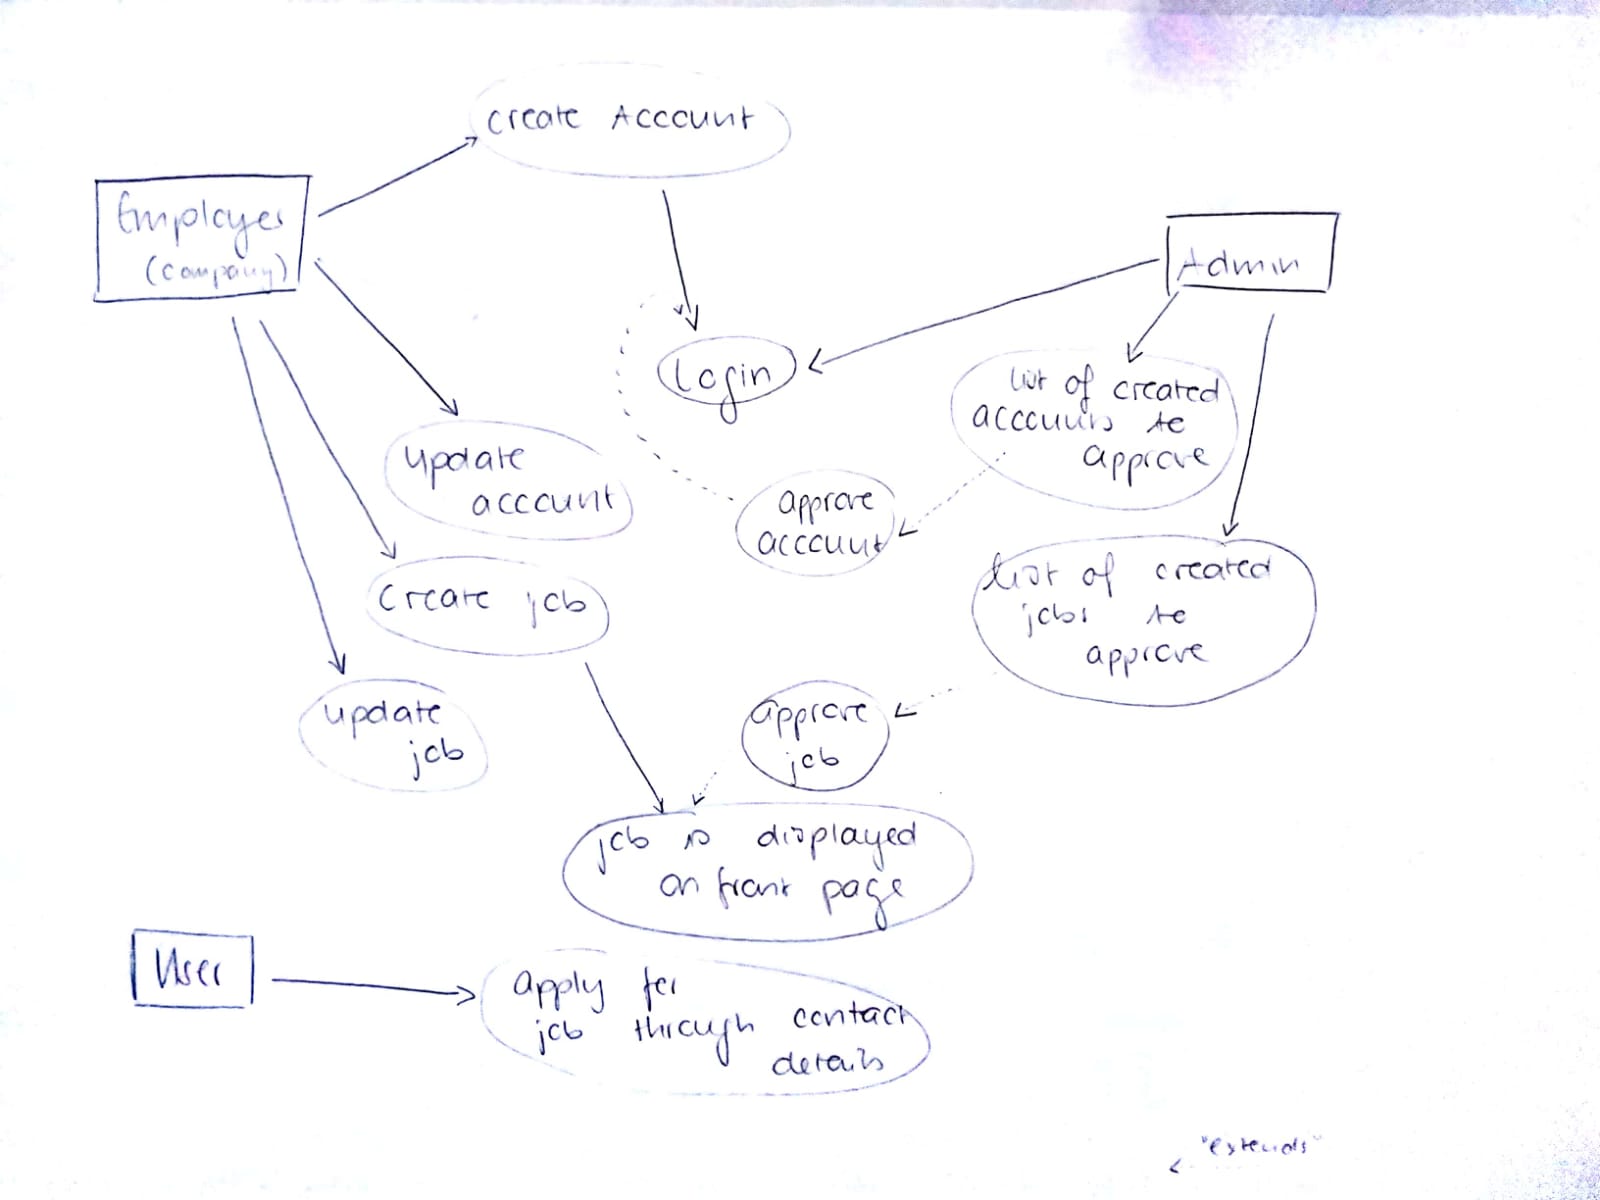 Create Account
Employer
(Company)
Admin
Login
list of created
accounts to
approve
update
account
approve
account
Create job
list of created
jobs to
approve
update
job
approve
job
job is displayed
on front page
User
apply for
job through contact
details
"extends"